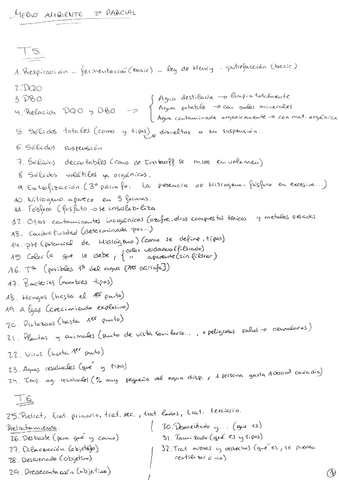 MEDIO AMBIENTE 2º PARCIAL
T5
1. Respiración – fermentación (basic) – ley de Henry – putrefacción (basic)
2. DQO
3. DBO
4. Relación DQO y DBO → Agua destilada → limpia totalmente
Agua potable → con sales minerales
Agua contaminada orgánicamente → con mat. orgánica
5. Sólidos totales (como y tipos) disueltos o en suspensión.
6. Sólidos suspensión
7. Sólidos decantables (cono de Imhoff se mide en volumen)
8. Sólidos volátiles y orgánicos.
9. Eutrofización (3º párrafo: La presencia de Nitrógeno – fósforo en exceso...)
10. Nitrógeno aparece en 3 formas.
11. Fósforo (fosfato → se insolubiliza
12. Otros contaminantes inorgánicos (azufre, otros compuestos tóxicos y metales pesados
13. Conductividad (determinada por...)
14. pH (potencial de Hidrógeno) (como se define, tipos)
15. Color (a que se debe, color verdadero (filtrado)
" aparente (sin filtrar)
16. Tª (posibles 1º del agua [1er párrafo])
17. Bacterias (nombres tipos)
18. Hongos (hasta el 1er punto)
19. Algas (crecimiento explosivo)
20. Protozoos (hasta 1er punto)
21. Plantas y animales (punto de vista sanitario..., + peligrosas salud →
22. Virus (hasta 1er punto)
23. Aguas residuales (qué y tipos)
24. Imp. ag. residuales (% muy pequeño del agua disp., 1 persona gasta
T6
25. Pretrat., trat. primario, trat. sec., trat. lodos, trat. terciario.
Pretratamiento
26. Desbaste (para qué y como)
27. Dilaceración (objetivo)
28. Desarenado (objetivo)
29. Predecantación (objetivo)
30. Desaceitado y... (qué es)
31. Tamizado (qué es y tipos)
32. Trat. arenas y desechos (qué es, se pueden
reutilizar o no)